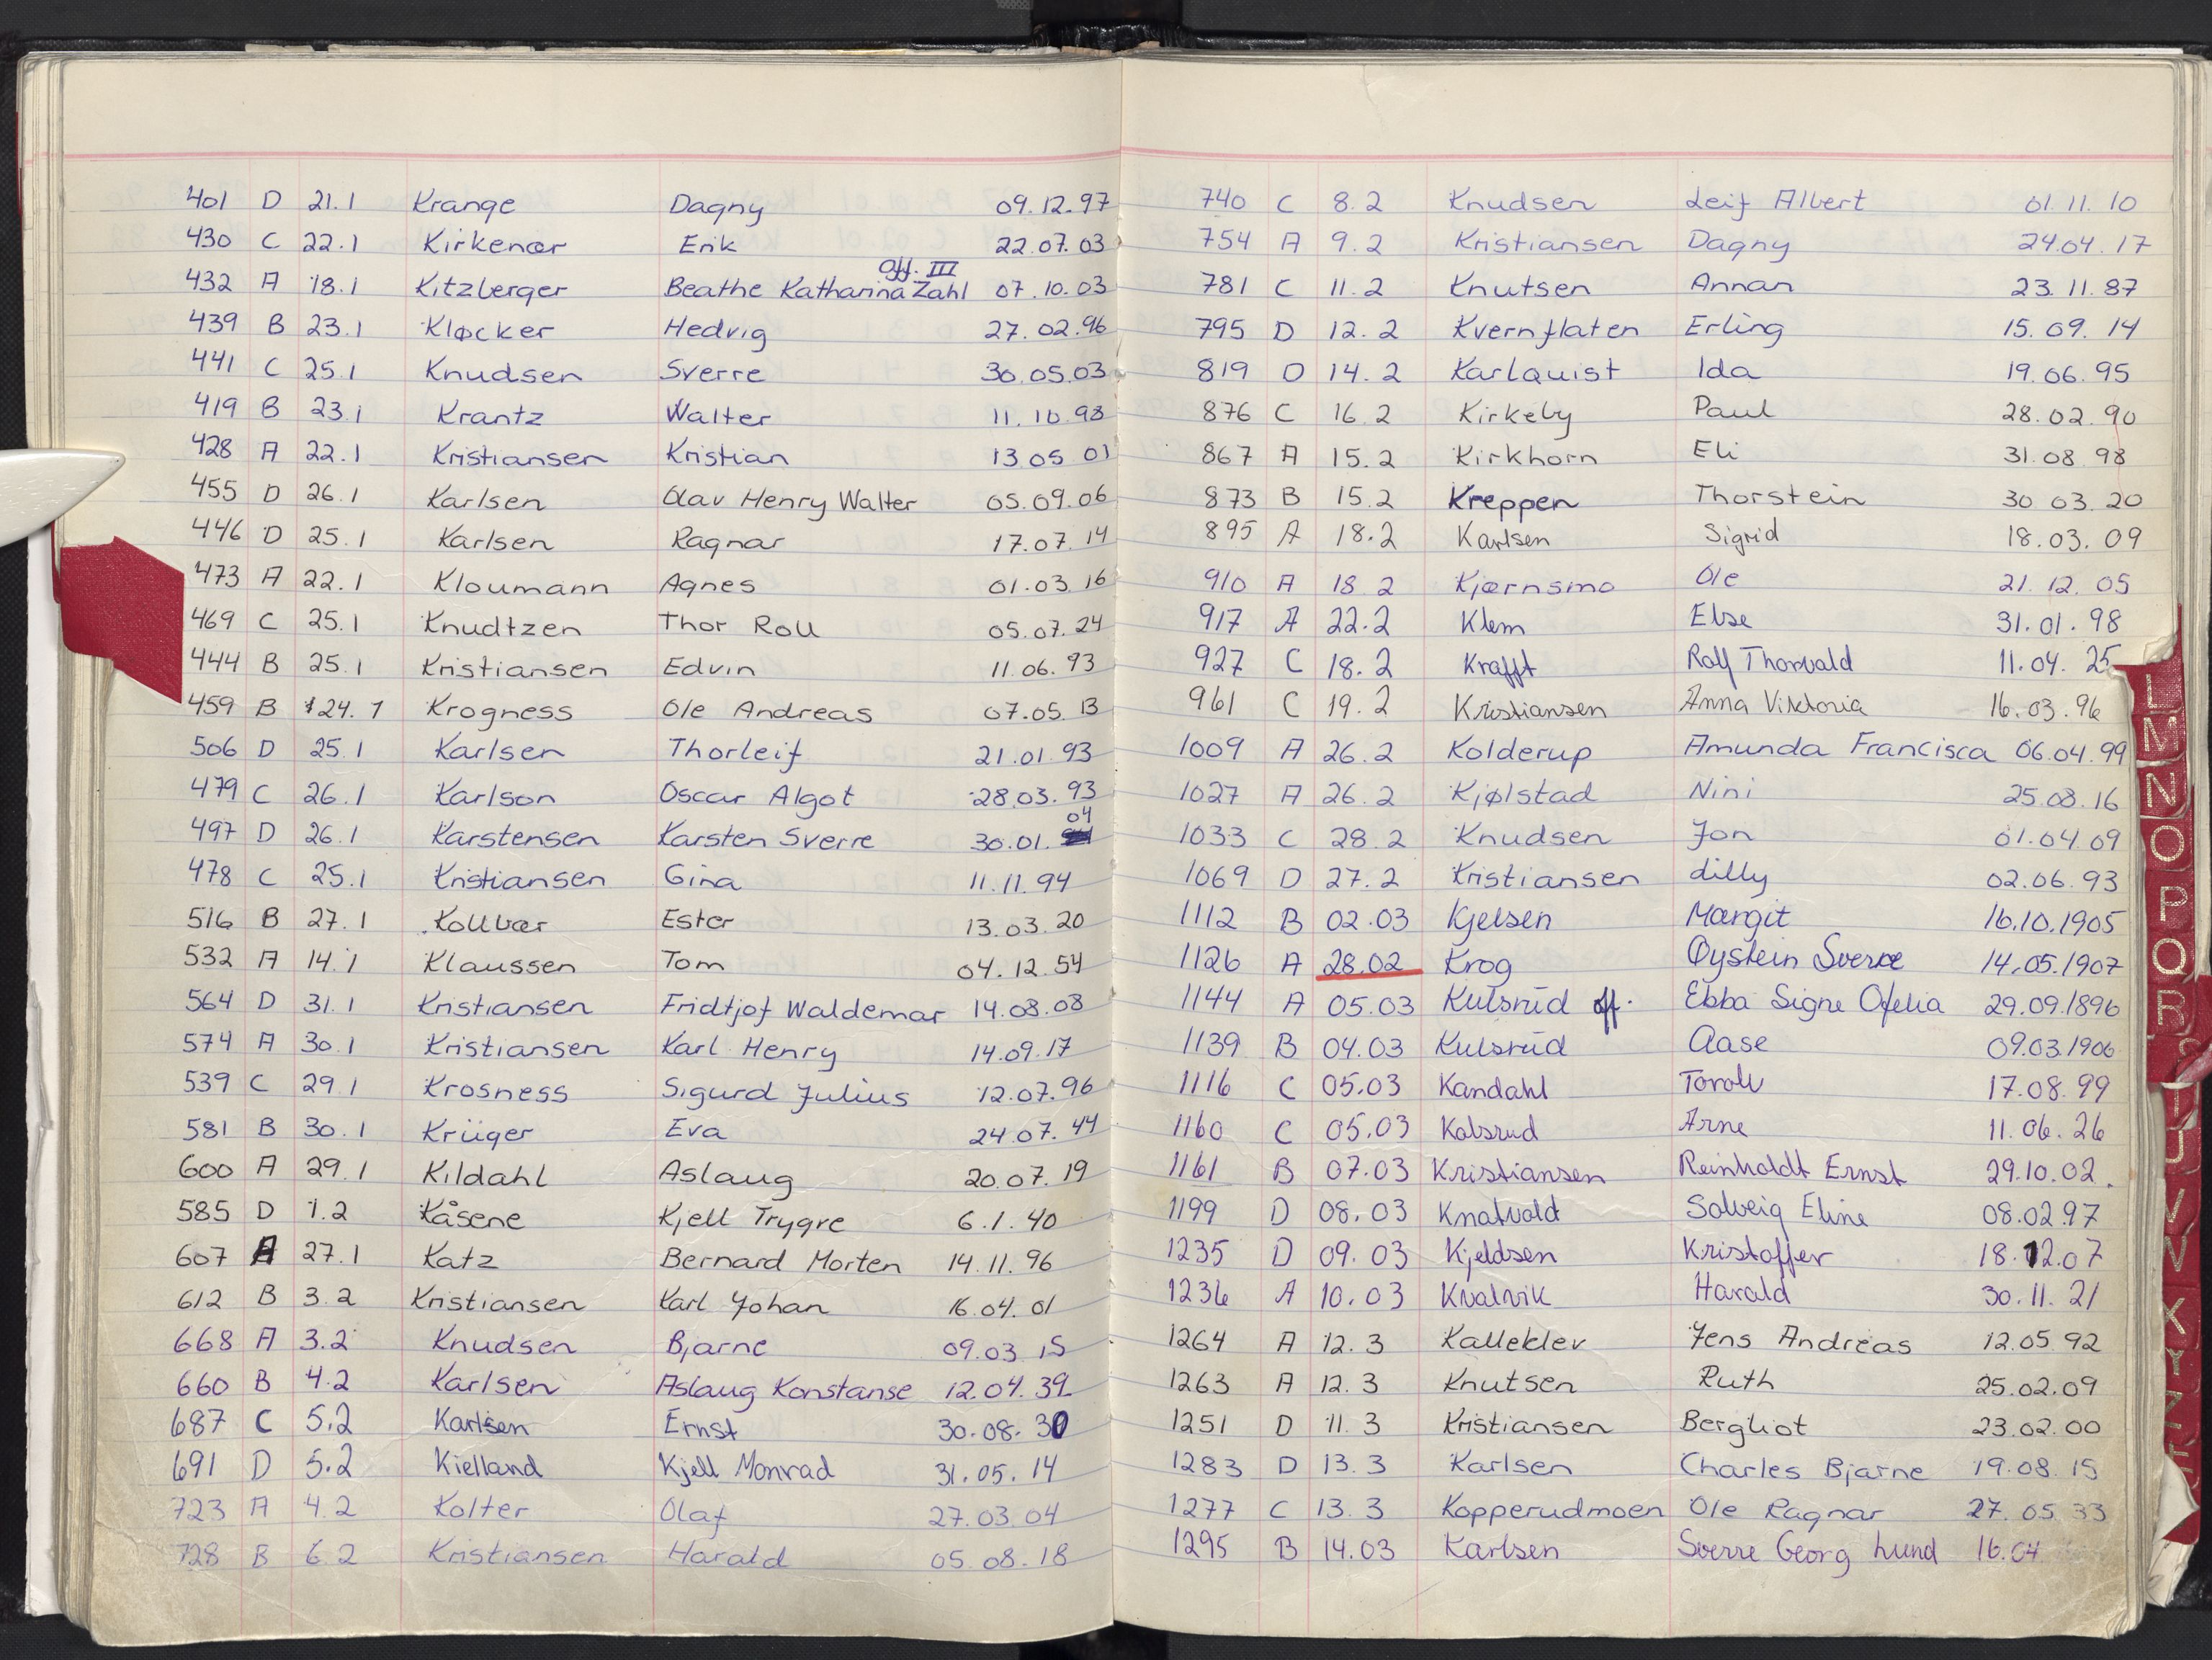 401 D 21.1 Krange Dagny 09.12.97
430 C 22.1 Kirkenær Erik 22.07.03
off. III
432 A 18.1 Kitzberger Beathe Katharina Zahl 07.10.03
439 B 23.1 Kløcker Hedvig 27.02.96
441 C 25.1 Knudsen Sverre 30.05.03
419 B 23.1 Krantz Walter 11.10.93
428 A 22.1 Kristiansen Kristian 13.05 01
455 D 26.1 Karlsen Olav Henry Walter 05.09.06
446 D 25.1 Karlsen Ragnar 17.07.14
473 A 22.1 Kloumann Agnes 01.03.16
469 C 25.1 Knudtzen Thor Roll 05.07.24
444 B 25.1 Kristiansen Edvin 11.06.93
459 B 24.1 Krogness Ole Andreas 07.05.13
506 D 25.1 Karlsen Thorleif 21.01.93
479 C 26.1 Karlson Oscar Algot 28.03.93
04
497 D 26.1 Karstensen Karsten Sverre 30.01.
478 C 25.1 Kristiansen Gina 11.11.94
516 B 27.1 Kollvær Ester 13.03.20
532 A 14.1 Klaussen Tom 04.12.54
564 D 31.1 Kristiansen Fridtjof Waldemar 14.08.08
574 A 30.1 Kristiansen Karl Henry 14.09.17
539 C 29.1 Krosness Sigurd Julius 12.07.96
581 B 30.1 Krüger Eva 24.07.44
600 A 29.1 Kildahl Aslaug 20.07.19
585 D 1.2 Kåsene Kjell Trygve 6.1.40
607 A 27.1 Katz Bernard Morten 14.11.96
612 B 3.2 Kristiansen Karl Johan 16.04.01
668 A 3.2 Knudsen Bjarne 09.03 15
660 B 4.2 Karlsen Aslaug Konstanse 12.04.39
687 C 5.2 Karlsen Ernst 30.08.30
691 D 5.2 Kielland Kjell Monrad 31.05.14
723 A 4.2 Kolter Olaf 27.03.04
728 B 6.2 Kristiansen Harald 05.08.18
740 C 8.2 Knudsen Leif Albert 01.11.10
754 A 9.2 Kristiansen Dagny 24.04.17
781 C 11.2 Knutsen Annan 23.11.87
795 D 12.2 Kvernflaten Erling 15.09.14
819 D 14.2 Karlquist Ida 19.06.95
876 C 16.2 Kirkeby Paul 28.02.90
867 A 15.2 Kirkhorn Eli 31.08.98
873 B 15.2 Kreppen Thorstein 30 03.20
895 A 18.2 Karlsen Sigrid 18.03.09
910 A 18 2 Kjærnsmo Ole 21.12.05
917 A 22.2 Klem Else 31.01.98
927 C 18.2 Krafft Rolf Thorvald 11.04.25
961 C 19.2 Kristiansen Anna Viktoria 16.03.96
1009 A 26.2 Kolderup Amunda Francisca 06.04.99
1027 A 26.2 Kjølstad Nini 25.08.16
1033 C 28.2 Knudsen Jon 01.04.09
1069 D 27.2 Kristiansen Lilly 02.06.93
1112 B 02.03 Kjelsen Margit 16.10.1905
1126 A 28.02 Krog Øystein Sverre 14.05.1907
1144 A 05.03 Kulsrud off. Ebba Signe Ofelia 29.09.1896
1139 B 04.03 Kulsrud Aase 09.03.1906
1116 C 05.03 Kandahl Torolv 17.08.99
1160 C 05.03 Kalsrud Arne 11.06.26
1161 B 07.03 Kristiansen Reinholdt Ernst 29.10.02.
1199 D 08.03 Knatvold Solveig Eline 08.02.97
1235 D 09.03 Kjeldsen Kristoffer 18.12.07
1236 A 10.03 Kvalvik Harald 30.11.21
1264 A 12.3 Kalleklev Jens Andreas 12.05 92
1263 A 12.3 Knutsen Ruth 25.02.09
1251 D 11.3 Kristiansen Bergliot 23.02.00
1283 D 13.3 Karlsen Charles Bjarne 19.08.15
1277 C 13.3 Kopperudmoen Ole Ragnar 27.05 33
1295 B 14.03 Karlsen Sverre Georg Lund 16.04
L
M
N
O
P
Q
R
T
U
V
X
Y
Z